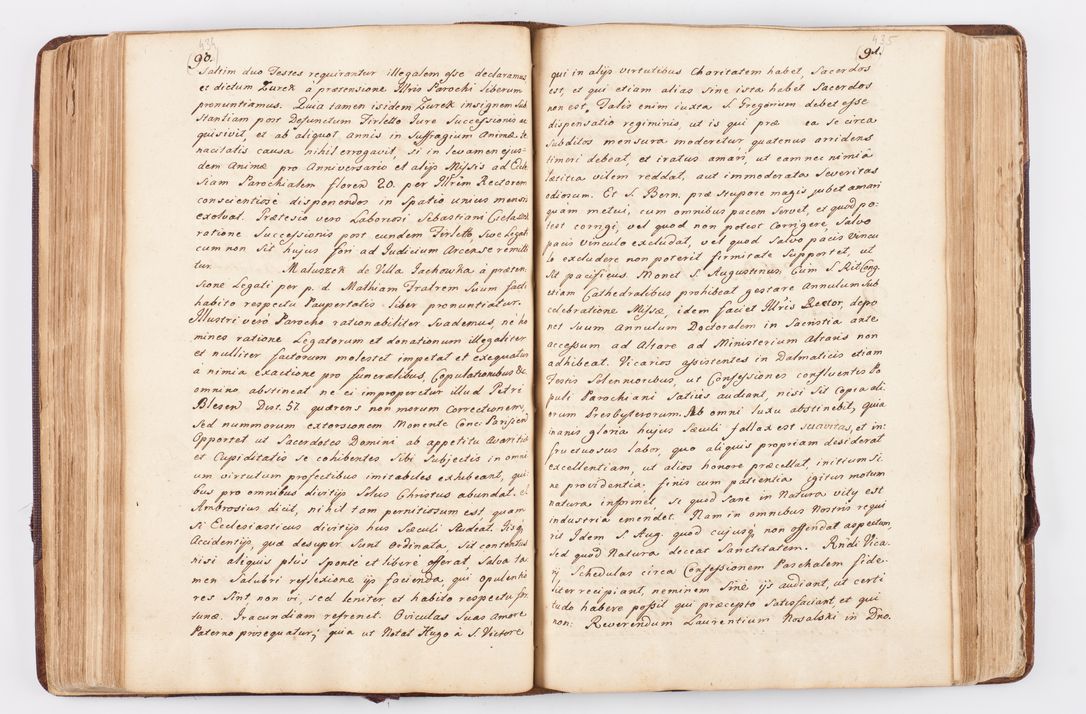 434
90.
Saltim duo Testes requirantur illegalem esse declaramus
et dictum Zurek à prætensione Illris Parochi liberum
pronuntiamus. Quia tamen isidem Zurek insignem Sub
stantiam post Defunctum Firletto Iure Successionis ac
quisivit, et ab aliquot annis in Suffragium Animæ te
nacitatis causa nihil errogavit, si in levamen ejus-
dem Animæ pro Anniversario et alijs Missis ad Eccle
siam Parochialem floren 20. per Illrem Rectorem
conscientiose disponendos in Spatio unius mensis
exolvat. Prætesio vero Laboriosi Sebastiani
ratione Successionis post eundem Firletto, Sive Legati
cum non Sit hujus fori ad Judicium Arcense remitti
tur. Maluszek de Villa Jachowka à præten
sione Legati per p. d. Mathiam Fratrem Suum facti
habito respectu Paupertatis liber pronuntiatur.
Illustri verò Parocho rationabiliter Svademus, ne ho
mines ratione Legatorum et donationum illegaliter
et nulliter factorum molestet impetat et exequatur
à nimia exactione pro funeralibus, Copulationibus &c.
omnino abstineat ne ei improperetur illud Petri
Blesen Dist. 57. quærens non morum Correctionem,
Sed nummorum extorsionem Monente Conc: Parisien
Opportet ut Sacerdotes Domini ab appetitu Avaritiæ
et Cupiditatis se cohibentes Sibi Subjectis in omni
um virtutum profectibus imitabiles exhibeant, qui-
bus pro omnibus divitijs Solus Christus abundat. et
Ambrosius dicit, nihil tam pernitiosum est, quam
Si Ecclesiasticus divitijs hus Sæculi Studeat. Iisq;
Accidentijs, quæ desuper Sunt Ordinata, Sit contentus
nisi aliquis plus Sponte et libere offerat, Salva ta-
men Salubri reflexione ijs facienda, qui opulentio
res Sint non vi, sed leniter et habito respectu for
tunæ. Iracundiam refrenet. Oviculas Suas Amore
Paterno prosequatur; quia ut Notat Hugo à S. Victore
435
91.
qui in alijs virtutibus Charitatem habet, Sacerdos
est, et qui etiam alias Sine ista habet Sacerdos
non est, Talis enim iuxta S. Gregorium debet esse
dispensatio regiminis, ut is qui præ ea se circa
Subditos mensura moderetur quatenus arridens
timeri debeat, et iratus amari, ut eam nec nimia
lætitia vilem reddat, aut immoderata Severitas
odiosum. Et S. Bern. præ Stupore magis jubet amari
quàm metui, cum omnibus pacem Servet, et quod po-
test corrigi, vel quod non potest Corrigere, Salvo
pacis vinculo excludat, vel quod Salvo pacis vincu
lo excludere non poterit firmitate Supportet, ut
Sit pacificus. Monet S. Augustinus, Cum S. Rit: Cong.
etiam Cathedralibus prohibeat gestare Annulum Sub
celebratione Missæ, idem faciet Illris Rector, depo
net Suum Annulum Doctoralem in Sacristia ante
accessum ad Altare ad Ministerium Altaris non
adhibeat. Vicarios assistentes in Dalmaticis etiam
Festis Solennioribus, ut Confessiones confluentes Po
puli Parochiani Satius audiant, nisi Sit Copia ali
orum Presbyterorum. Ab omni luxu abstinebit, quia
inanis gloria hujus Sæculi fallax est suavitas, et in-
fructuosus labor, quo aliquis propriam desiderat
excellentiam, ut alios honore præcellat, initium si-
ne providentia. finis cum patientia igitur motum
natura informet, Si quod Sane in Natura vity est
industria emendet. Nam in omnibus Nostris requi
rit Idem S. Aug. quod cujusq; non offendat aspectum,
Sed quod Natura deceat Sanctitatem. Rndi Vica-
ij Schedulas circa Confessionem Paschalem fide-
liter recipiant, neminem Sine ijs audiant, ut certi
tudo habere possit qui præcepto Satisfaciant, et qui
non: Reverendum Laurentium Nosalski in Dno.